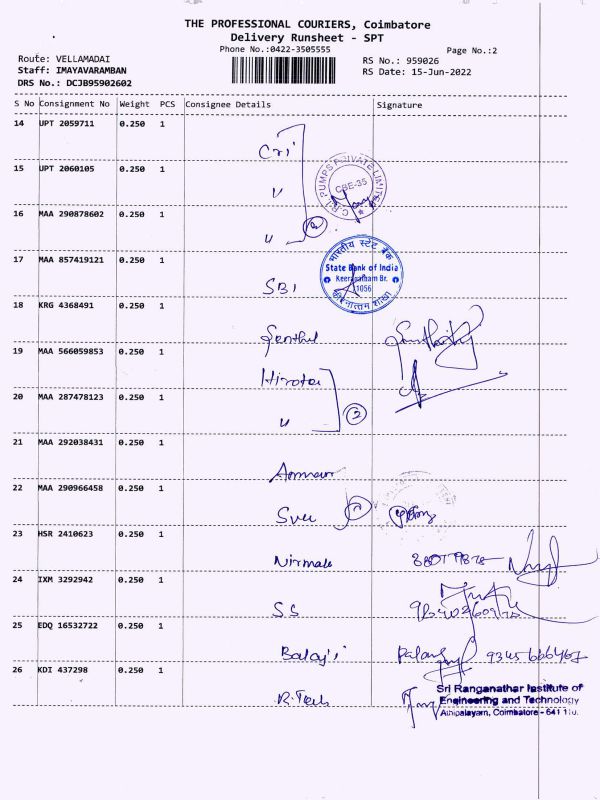 THE PROFESSIONAL COURIERS, Coimbatore
Delivery Runsheet - SPT
Phone No.:0422-3505555
Page No.:2
Route: VELLAMADAI
RS No.: 959026
Staff: IMAYAVARAMBAN
RS Date: 15-Jun-2022
DRS No.: DCJB95902602
S No Consignment No Weight PCS Consignee Details Signature
14 UPT 2059711 0.250 1
Cri
C.R.I. PUMPS PRIVATE LIMITED
CBE-35
15 UPT 2060105 0.250 1
16 MAA 290878602 0.250 1
17 MAA 857419121 0.250 1
SBI
भारतीय स्टेट बैंक
State Bank of India
Keeranatham Br.
11056
18 KRG 4368491 0.250 1
Senthil
19 MAA 566059853 0.250 1
20 MAA 287478123 0.250 1
2
21 MAA 292038431 0.250 1
22 MAA 290966458 0.250 1
23 HSR 2410623 0.250 1
Nirmala
24 IXM 3292942 0.250 1
S.S
25 EDQ 16532722 0.250 1
Balaji
26 KDI 437298 0.250 1
R.Tech
Sri Ranganathar Institute of
Engineering and Technology
Athipalayam, Coimbatore - 641 110.